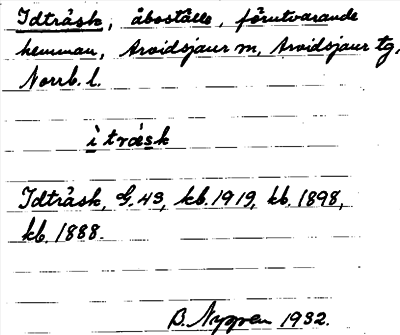 Idträsk, åboställe, förutvarande
hemman, Arvidsjaur sn, Arvidsjaur tg,
Norrb. l.
ì trä́sk
Idträsk, G. 43, kb. 1919, kb. 1898,
kb. 1888.
B. Nygren 1932.